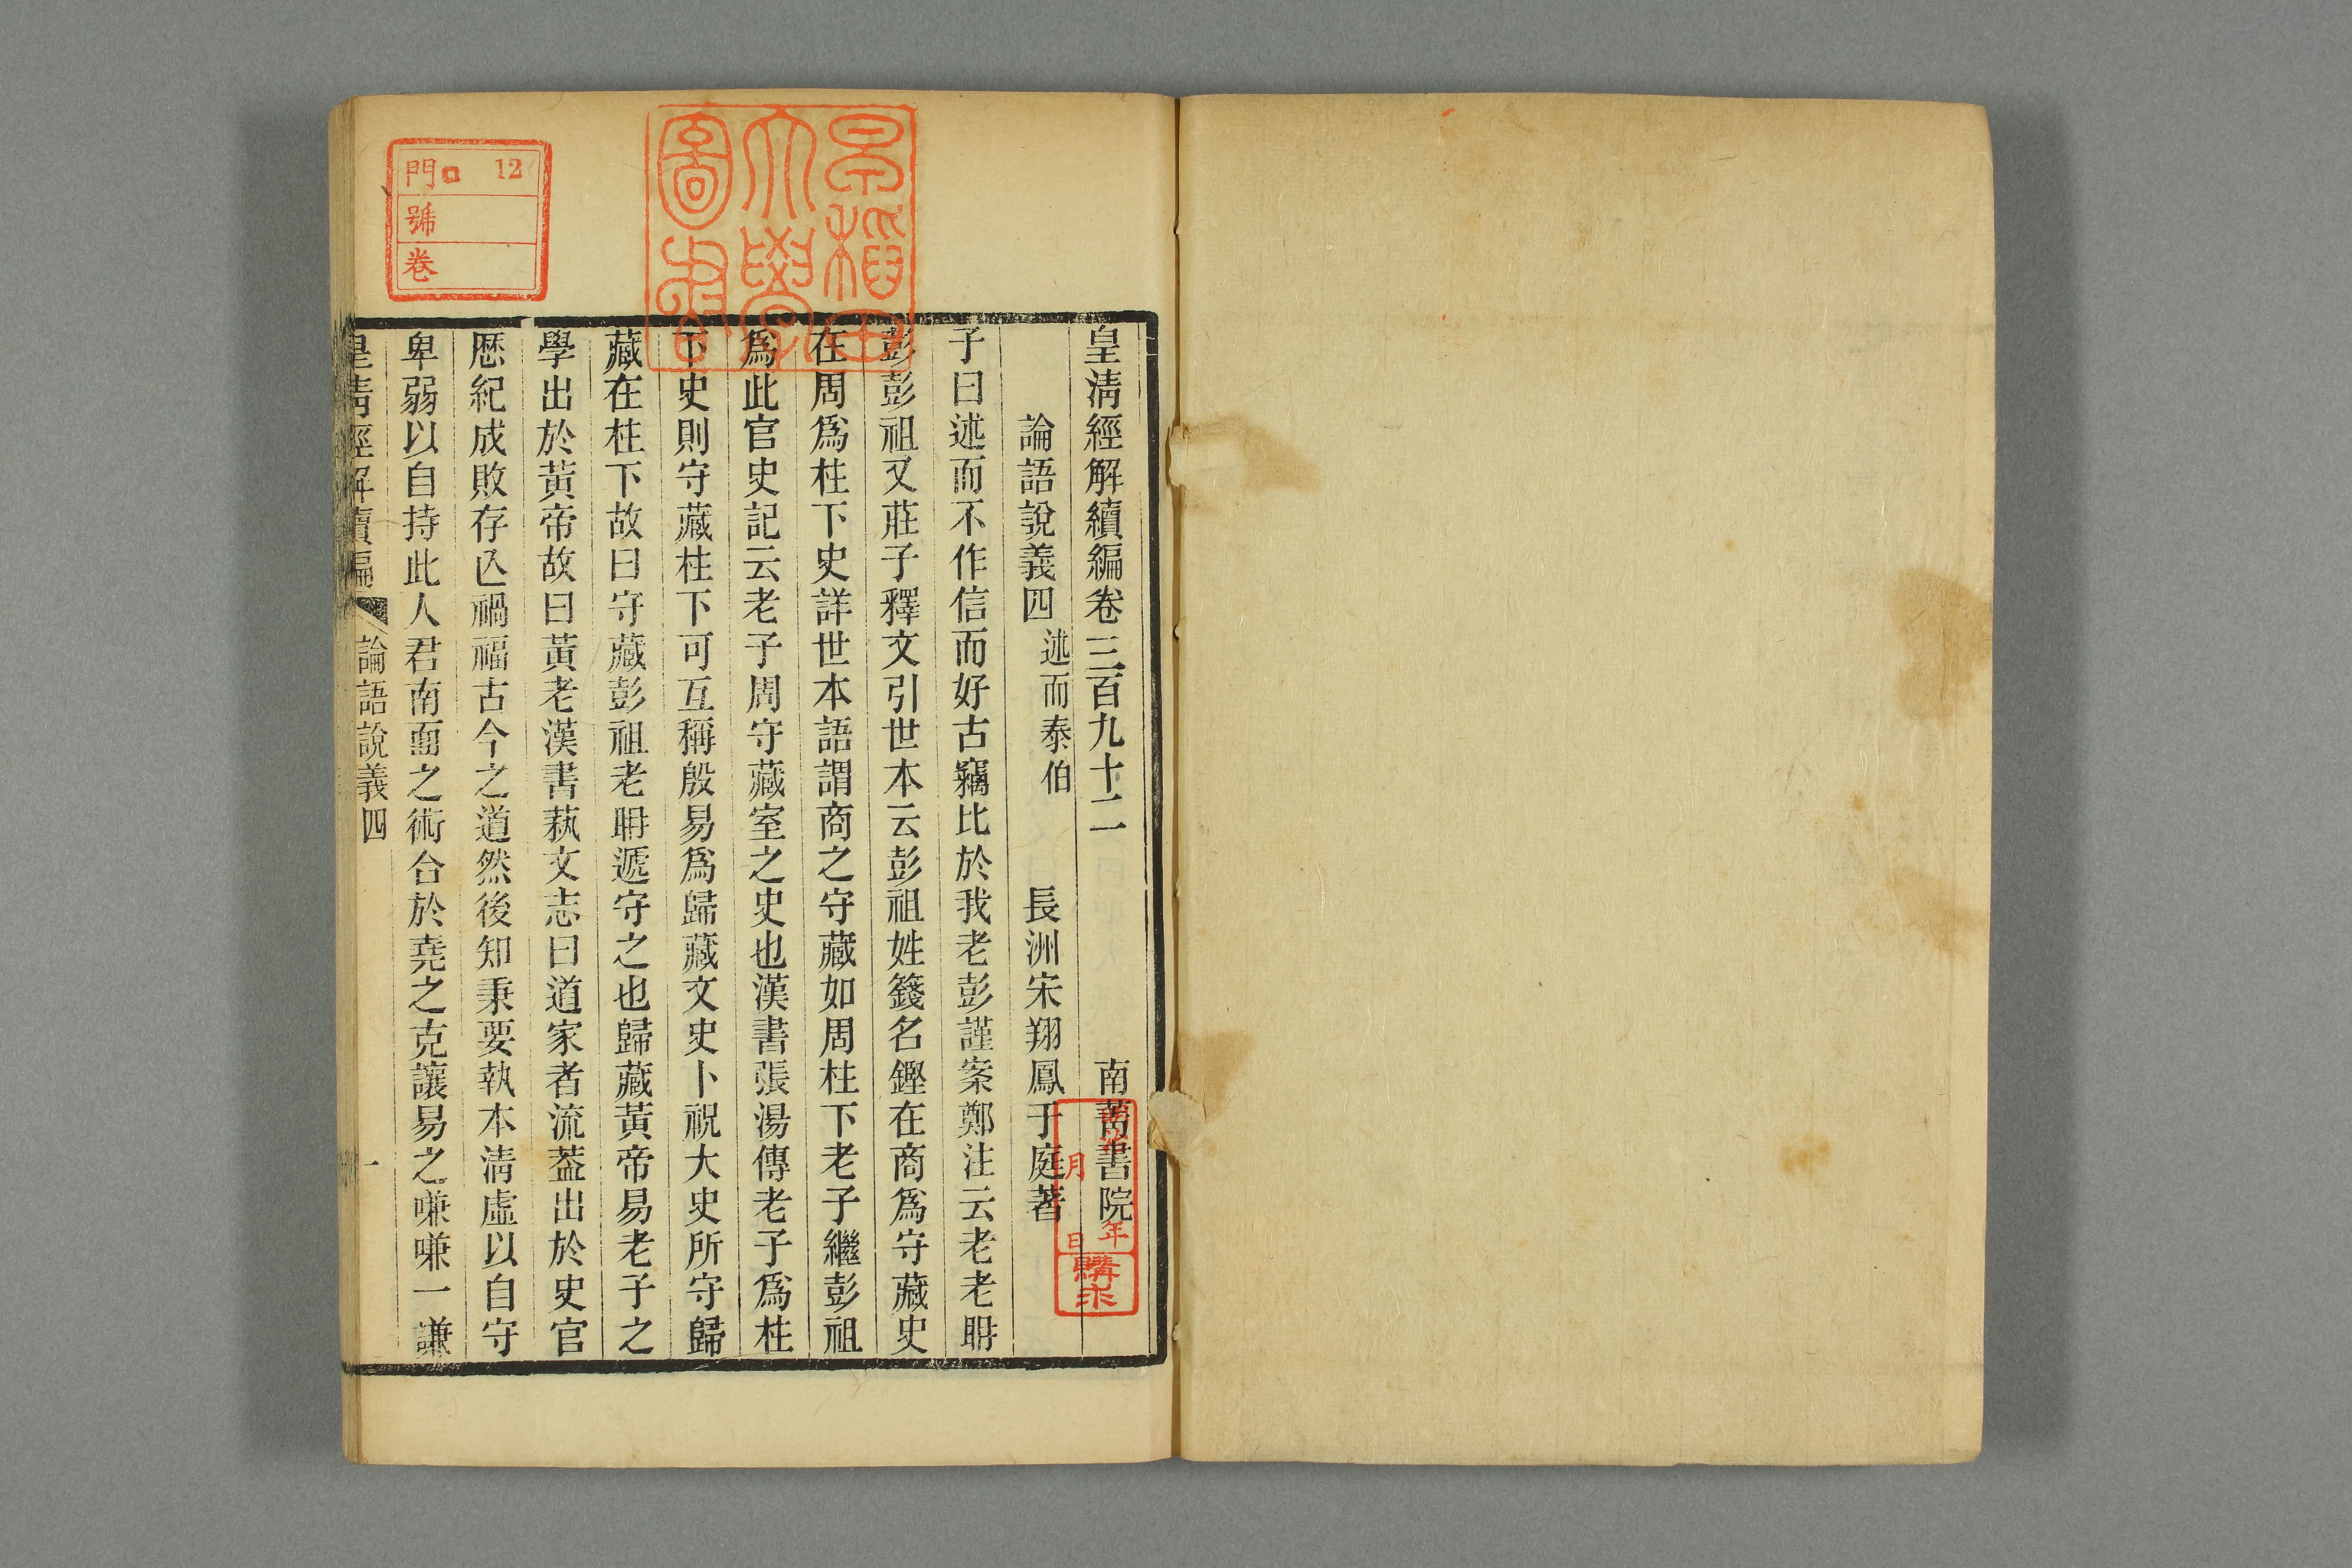 皇清經解續編卷三百九十二 南菁書院
論語說義四 述而 泰伯 長洲宋翔鳳于庭著
子曰述而不作信而好古竊比於我老彭謹案鄭注云老老耼
彭彭祖又莊子釋文引世本云彭祖姓籛名鏗在商爲守藏史
在周爲柱下史詳世本語謂商之守藏如周柱下老子繼彭祖
爲此官史記云老子周守藏室之史也漢書張湯傳老子爲柱
下史則守藏柱下可互稱殷易爲歸藏文史卜祝大史所守歸
藏在柱下故曰守藏彭祖老耼遞守之也歸藏黃帝易老子之
學出於黃帝故曰黃老漢書蓺文志曰道家者流葢出於史官
厯紀成敗存亾禍福古今之道然後知秉要執本清虛以自守
卑弱以自持此人君南面之術合於堯之克讓易之嗛嗛一謙
皇清經解續編 論語說義四 一
早稻田大學圖書
門 口 12
號
卷
年
月
日
購求